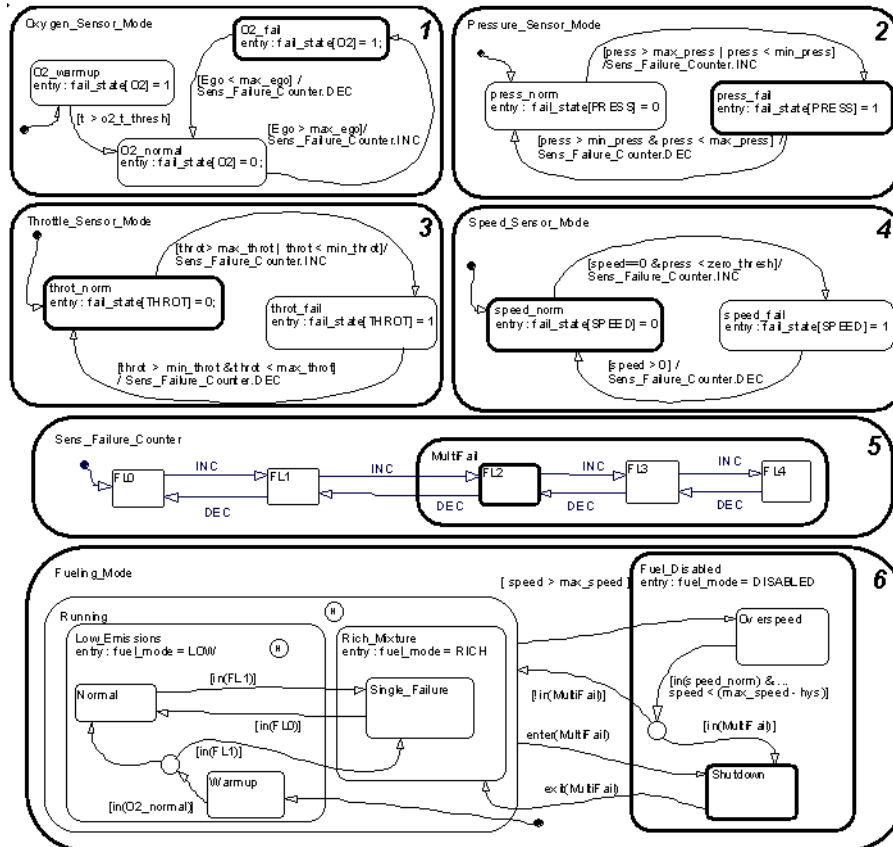 Oxygen_Sensor_Mode
1
O2_fail
entry : fail_state[O2] = 1;
O2_warmup
entry : fail_state[O2] = 1
[Ego < max_ego] /
Sens_Failure_Counter.DEC
[t > o2_t_thresh]
[Ego > max_ego]/
Sens_Failure_Counter.INC
O2_normal
entry : fail_state[O2] = 0;
Pressure_Sensor_Mode
2
[press > max_press | press < min_press]
/Sens_Failure_Counter.INC
press_norm
entry : fail_state[PRESS] = 0
press_fail
entry : fail_state[PRESS] = 1
[press > min_press & press < max_press] /
Sens_Failure_Counter.DEC
Throttle_Sensor_Mode
3
[throt> max_throt | throt < min_throt]/
Sens_Failure_Counter.INC
throt_norm
entry : fail_state[THROT] = 0;
throt_fail
entry : fail_state[THROT] = 1
[throt > min_throt &throt < max_throt]
/ Sens_Failure_Counter.DEC
Speed_Sensor_Mode
4
[speed==0 &press < zero_thresh]/
Sens_Failure_Counter.INC
speed_norm
entry : fail_state[SPEED] = 0
speed_fail
entry : fail_state[SPEED] = 1
[speed >0] /
Sens_Failure_Counter.DEC
Sens_Failure_Counter
5
MultiFail
FL0
INC
DEC
FL1
INC
DEC
FL2
INC
DEC
FL3
INC
DEC
FL4
Fueling_Mode
6
[ speed > max_speed ]
Fuel_Disabled
entry : fuel_mode = DISABLED
Running
H
Low_Emissions
entry : fuel_mode = LOW
H
Rich_Mixture
entry : fuel_mode = RICH
Overspeed
[in(FL1)]
Normal
Single_Failure
[in(speed_norm) &...
speed < (max_speed - hys)]
[!in(MultiFail)]
[in(FL0)]
[in(MultiFail)]
[in(FL1)]
enter(MultiFail)
Warmup
Shutdown
[in(O2_normal)]
exit(MultiFail)